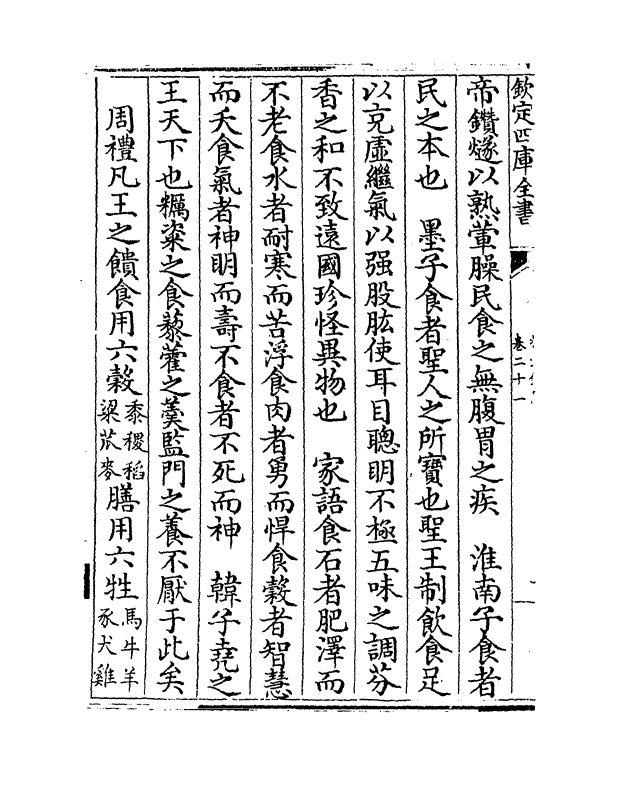 欽定四庫全書
卷二十一
帝鑽燧以熟葷臊民食之無腹胃之疾　淮南子食者
民之本也　墨子食者聖人之所寶也聖王制飲食足
以充虛繼氣以强股肱使耳目聰明不極五味之調芬
香之和不致遠國珍怪異物也　家語食石者肥澤而
不老食水者耐寒而苦浮食肉者勇而悍食穀者智慧
而夭食氣者神明而壽不食者不死而神　韓子堯之
王天下也糲粢之食藜藿之羹監門之養不厭于此矣
周禮凡王之饋食用六穀黍稷稻粱苽麥膳用六牲馬牛羊豕犬雞